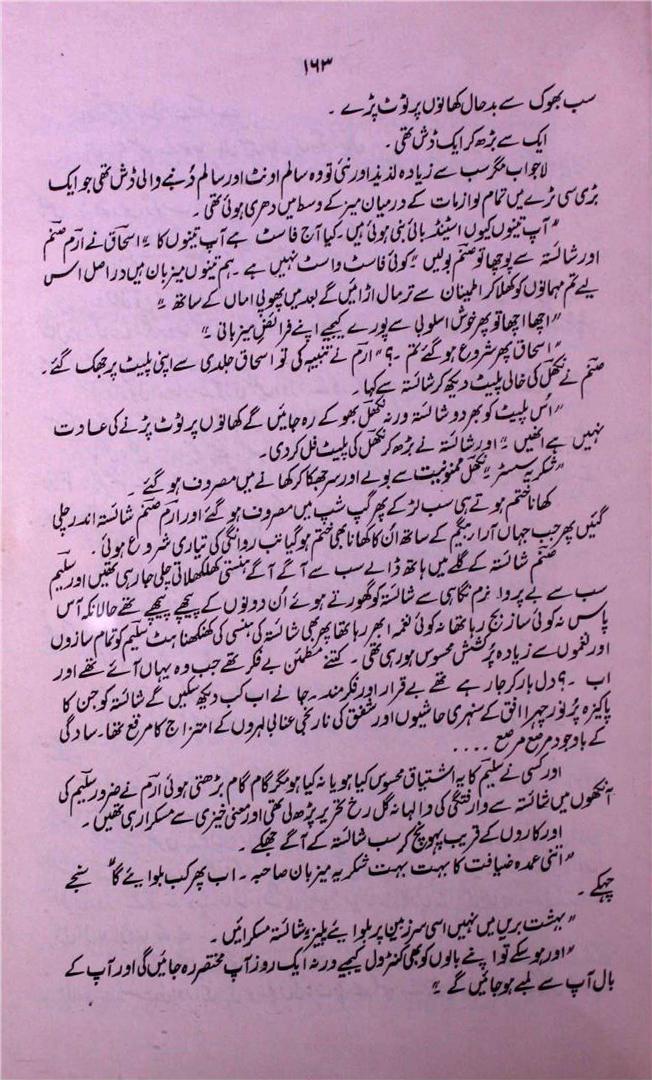 ۱۶۳
سب بھوک سے بدحال کھانوں پر ٹوٹ پڑے ۔
ایک سے بڑھ کر ایک ڈش تھی ۔
لاجواب مگر سب سے زیادہ لذیذ اور نئی تو وہ سالم اونٹ اور سالم دُنبے والی ڈش تھی جو ایک
بڑی سی ٹرے میں تمام لوازمات کے درمیان میز کے وسط میں دھری ہوئی تھی ۔
”آپ تینوں کیوں اسٹینڈ بائی بنی ہوئی ہیں ۔ کیا آج فاسٹ ہے آپ تینوں کا “ اسحاق نے ارم صنم
اور شائستہ سے پوچھا تو صنم بولیں ” کوئی فاسٹ واسٹ نہیں ہے ۔ ہم تینوں میزبان ہیں در اصل اس
لیے تم مہمانوں کو کھلا کر اطمینان سے ترمال اڑائیں گے بعد میں پھوپی اماں کے ساتھ “
”اچھا اچھا تو پھر خوش اسلوبی سے پورے کیجیے اپنے فرائضِ میزبانی “
”اسحاق پھر شروع ہو گئے تم ۔ ؟“ ارم نے تنبیہہ کی تو اسحاق جلدی سے اپنی پلیٹ پر جھک گئے ۔
صنم نے نکھل کی خالی پلیٹ دیکھ کر شائستہ سے کہا ۔
”اُس پلیٹ کو بھر دو شائستہ ورنہ نکھل بھوکے رہ جائیں گے کھانوں پر ٹوٹ پڑنے کی عادت
نہیں ہے انھیں “ اور شائستہ نے بڑھ کر نکھل کی پلیٹ فل کردی ۔
”شکریہ سسٹر “ نکھل ممنونیت سے بولے اور سر جھکا کر کھانے میں مصروف ہو گئے ۔
کھانا ختم ہوتے ہی سب لڑکے پھر گپ شپ میں مصروف ہو گئے اور ارم صنم شائستہ اندر چلی
گئیں پھر جب جہاں آرا بیگم کے ساتھ اُن کا کھانا بھی ختم ہو گیا تب روانگی کی تیاری شروع ہوئی ۔
صنم شائستہ کے گلے میں ہاتھ ڈالے سب سے آگے آگے ہنستی کھلکھلاتی چلی جا رہی تھیں اور سلیم
سب سے بے پروا نرم نگاہی سے شائستہ کو گھورتے ہوئے اُن دونوں کے پیچھے پیچھے تھے حالانکہ آس
پاس نہ کوئی ساز بج رہا تھا نہ کوئی نغمہ ابھر رہا تھا پھر بھی شائستہ کی ہنسی کی کھنکھناہٹ سلیم کو تمام سازوں
اور نغموں سے زیادہ پُرکشش محسوس ہو رہی تھی ۔ کتنے مطمئن بے فکر تھے جب وہ یہاں آئے تھے اور
اب ۔ ؟ دل ہار کر جا رہے تھے بے قرار اور فکر مند ۔ جانے اب کب دیکھ سکیں گے شائستہ کو جن کا
پاکیزہ پُرنور چہرا افق کے سنہری حاشیوں اور شفق کی نارنجی عنابی لہروں کے امتزاج کا مرقع تھا ۔ سادگی
کے باوجود مرصع مرصع ....
اور کسی نے سلیم کا یہ اشتیاق محسوس کیا ہو یا نہ کیا ہو مگر گام گام بڑھتی ہوئی ارم نے ضرور سلیم کی
آنکھوں میں شائستہ سے وارفتگی کی والہانہ گل رخ تحریر پڑھ لی تھی اور معنی خیزی سے مسکرا رہی تھیں ۔
اور کاروں کے قریب پہونچ کر سب شائستہ کے آگے جھکے ۔
”اتنی عمدہ ضیافت کا بہت بہت شکریہ میزبان صاحبہ ۔ اب پھر کب بلوایئے گا “ سنجے
چہکے ۔
”بہشت بریں میں نہیں اسی سرزمین پر بلوایئے پلیز “ شائستہ مسکرائیں ۔
”اور ہو سکے تو اپنے بالوں کو بھی کنٹرول کیجیے ورنہ ایک روز آپ مختصر رہ جائیں گی اور آپ کے
بال آپ سے لمبے ہو جائیں گے “